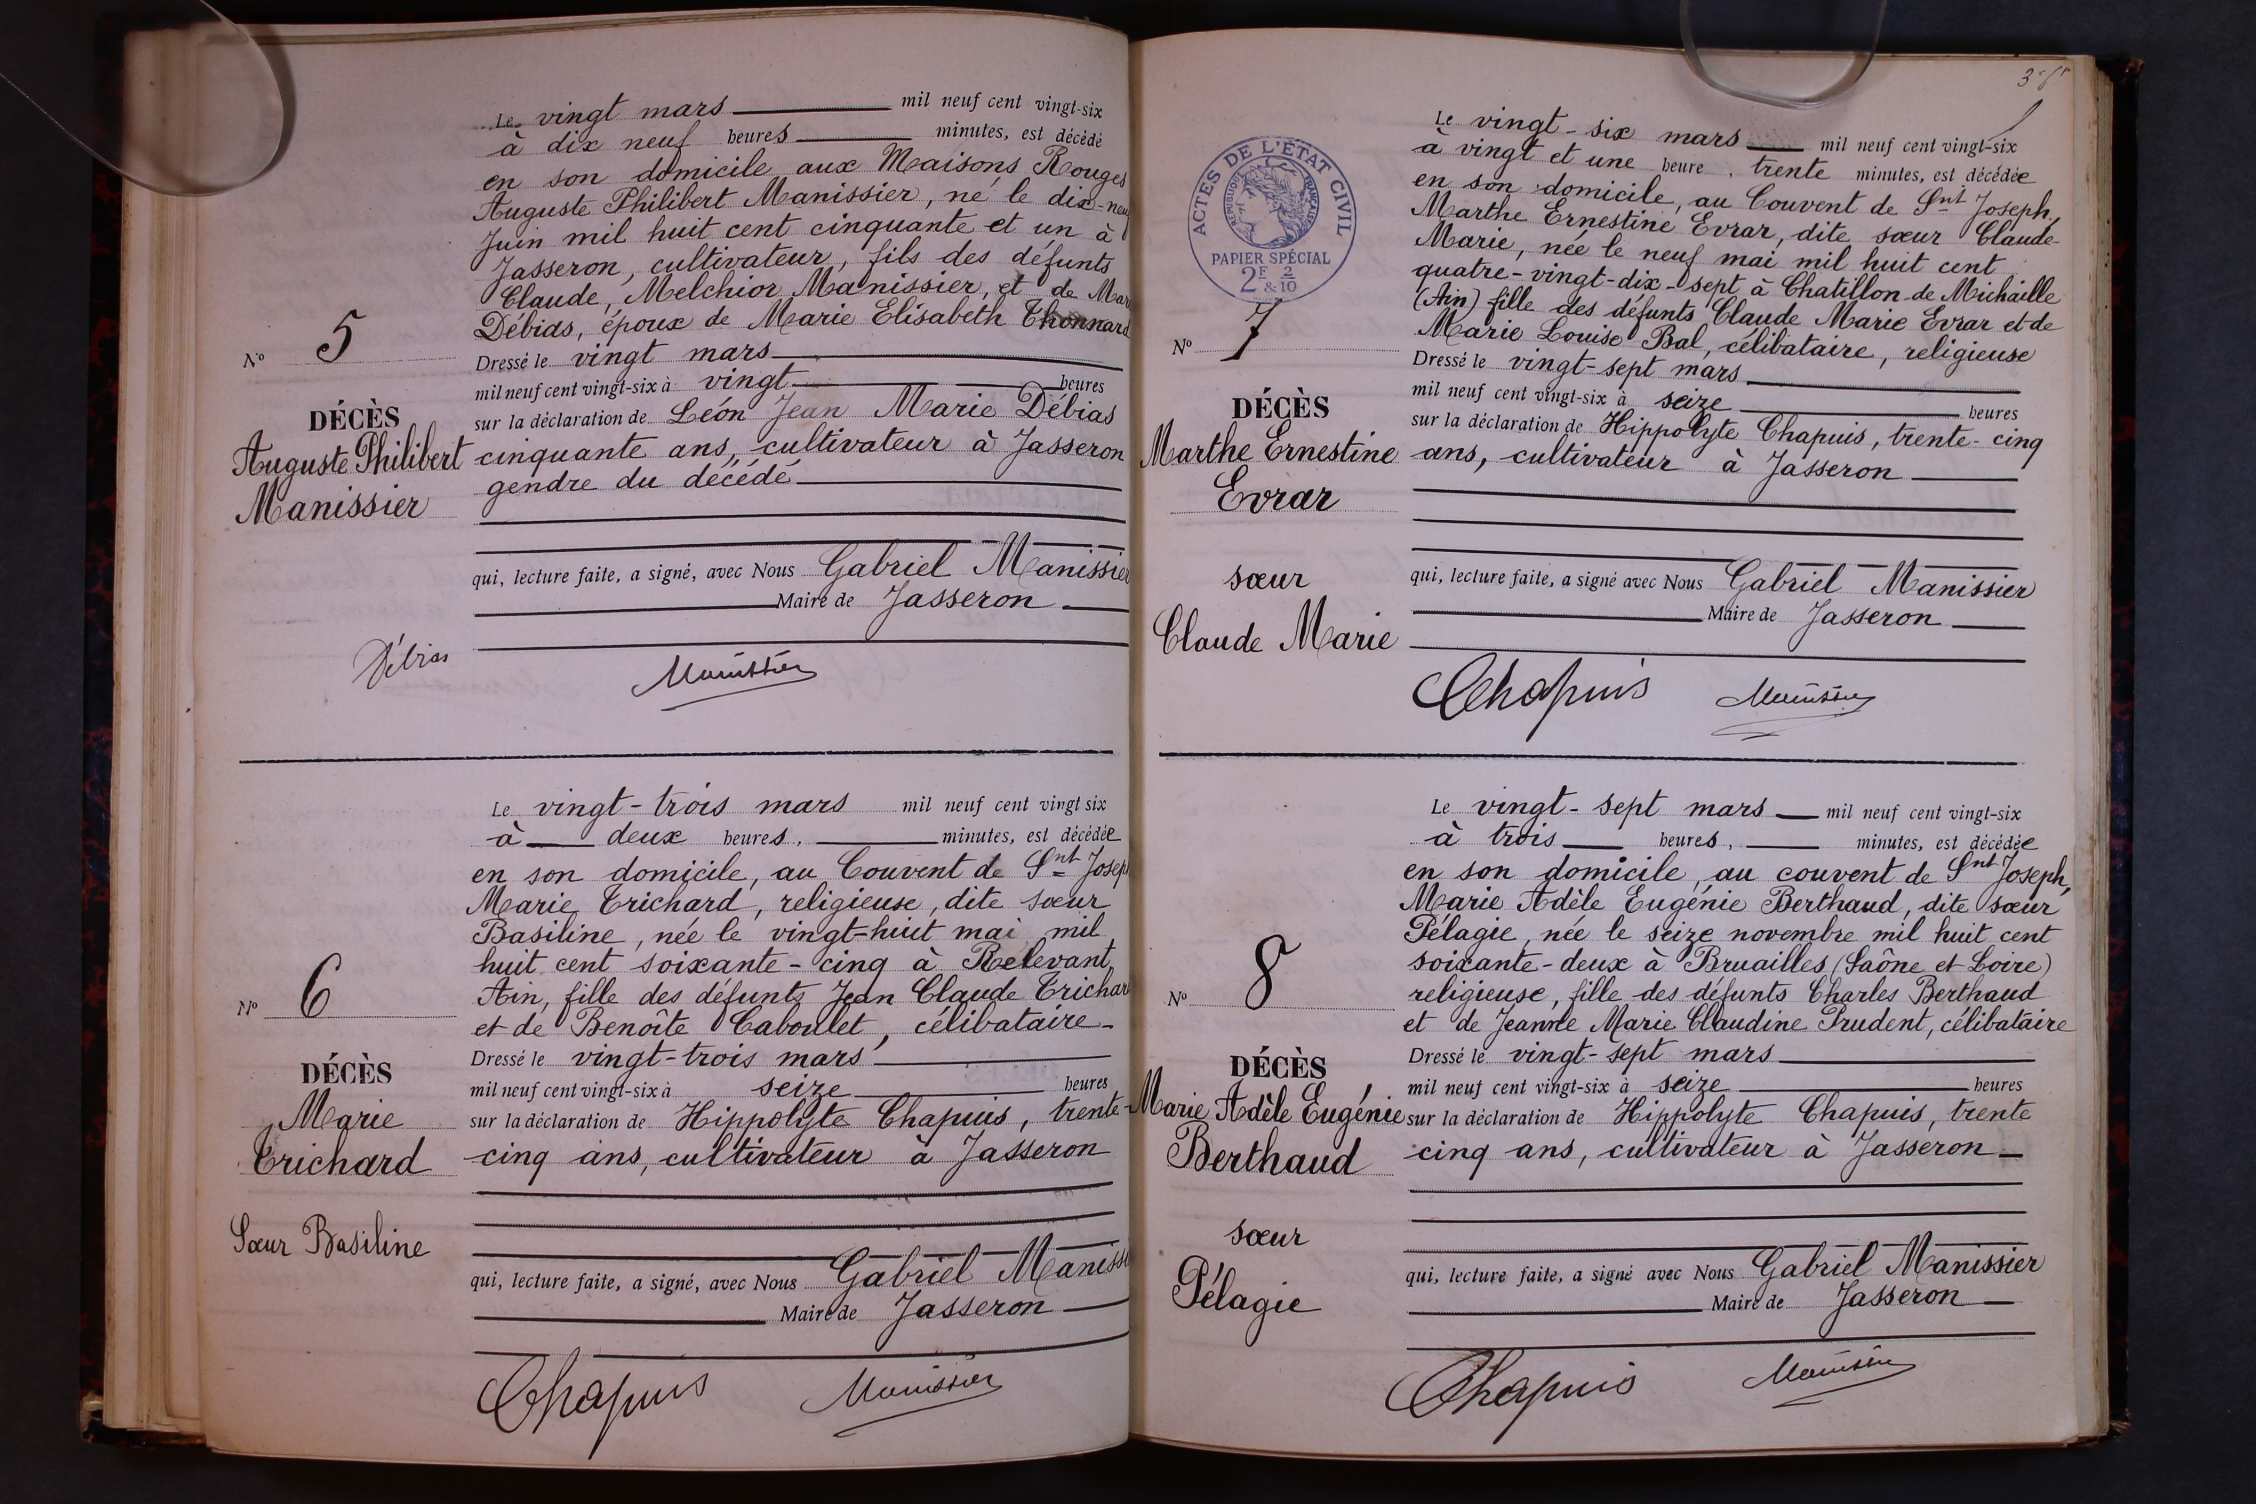 Le vingt mars mil neuf cent vingt-six
à dix neuf heures minutes, est décédé
en son domicile aux Maisons Rouges
Auguste Philibert Manissier, né le dix-neuf
Juin mil huit cent cinquante et un à
Jasseron, cultivateur, fils des défunts
Claude, Melchior Manissier, et de Mar
Débias, époux de Marie Elisabeth Thonnard
No 5
Dressé le vingt mars
mil neuf cent vingt-six à vingt heures
DÉCÈS
sur la déclaration de Léon Jean Marie Débias
Auguste Philibert
cinquante ans, cultivateur à Jasseron
Manissier
gendre du décédé
qui, lecture faite, a signé, avec Nous Gabriel Manissier
Maire de Jasseron
Débias Manissier
Le vingt-trois mars mil neuf cent vingt six
à deux heures, minutes, est décédée
en son domicile, au Couvent de Snt Josep
Marie Trichard, religieuse, dite sœur
Basiline, née le vingt-huit mai mil
huit cent soixante-cinq à Relevant,
Ain, fille des défunts Jean Claude Trichar
No 6
et de Benoîte Caboulet, célibataire
Dressé le vingt-trois mars
DÉCÈS
mil neuf cent vingt-six à seize heures
Marie
sur la déclaration de Hippolyte Chapuis, trente-
Trichard
cinq ans, cultivateur à Jasseron
Sœur Basiline
qui, lecture faite, a signé, avec Nous Gabriel Maniss
Maire de Jasseron
Chapuis Manissier
ACTES DE L'ÉTAT CIVIL
RÉPUBLIQUE FRANÇAISE
PAPIER SPÉCIAL
2F & 2/10
Le vingt-six mars mil neuf cent vingt-six
à vingt et une heure, trente minutes, est décédée
en son domicile, au Couvent de Snt Joseph,
Marthe Ernestine Evrar, dite sœur Claude-
Marie, née le neuf mai mil huit cent
quatre-vingt-dix-sept à Chatillon de Michaille
(Ain) fille des défunts Claude Marie Evrar et de
Marie Louise Bal, célibataire, religieuse
No 7
Dressé le vingt-sept mars
mil neuf cent vingt-six à seize heures
DÉCÈS
sur la déclaration de Hippolyte Chapuis, trente-cinq
Marthe Ernestine
ans, cultivateur à Jasseron
Evrar
sœur
Claude Marie
qui, lecture faite, a signé avec Nous Gabriel Manissier
Maire de Jasseron
Chapuis Manissier
Le vingt-sept mars mil neuf cent vingt-six
à trois heures, minutes, est décédée
en son domicile, au couvent de Snt Joseph,
Marie Adèle Eugénie Berthaud, dite sœur
Pélagie, née le seize novembre mil huit cent
soixante-deux à Bruailles (Saône et Loire)
religieuse, fille des défunts Charles Berthaud
No 8
et de Jeanne Marie Claudine Prudent, célibataire
Dressé le vingt-sept mars
DÉCÈS
mil neuf cent vingt-six à seize heures
Marie Adèle Eugénie
sur la déclaration de Hippolyte Chapuis, trente
Berthaud
cinq ans, cultivateur à Jasseron
sœur
Pélagie
qui, lecture faite, a signé avec Nous Gabriel Manissier
Maire de Jasseron
Chapuis Manissier